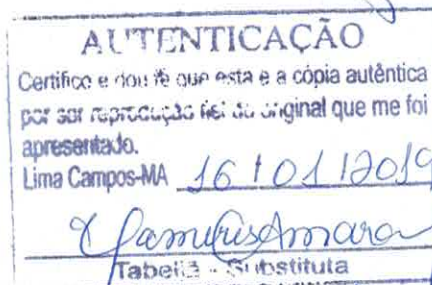 AUTENTICAÇÃO
Certifico e dou fé que esta e a cópia autêntica
por ser reprodução fiel do original que me foi
apresentado.
Lima Campos-MA 16/01/2019
Tabeliã - Substituta